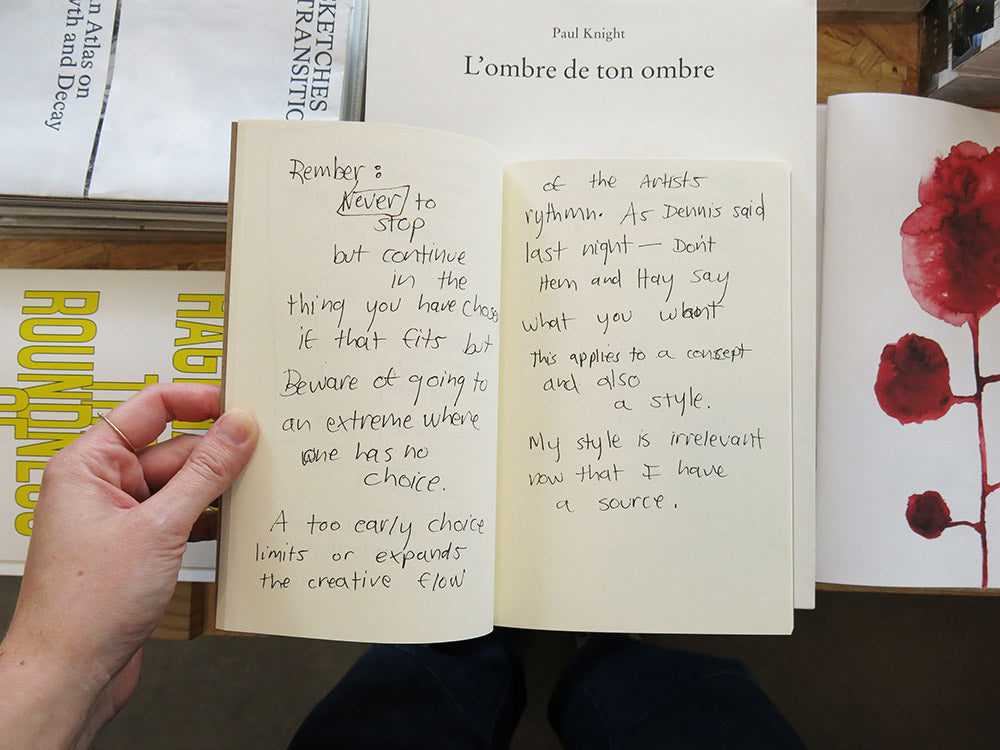 n Atlas on
wth and Decay
KETCHES
TRANSITIO
Paul Knight
L'ombre de ton ombre
ROUNDNESS
OF
Rember:
Never to
stop
but continue
in the
thing you have chose
if that fits but
Beware of going to
an extreme where
one has no
choice.
A too early choice
limits or expands
the creative flow
of the Artists
rythmn. As Dennis said
last night — Don't
Hem and Hay say
what you want
This applies to a consept
and also
a style.
My style is irrelevant
now that I have
a source.